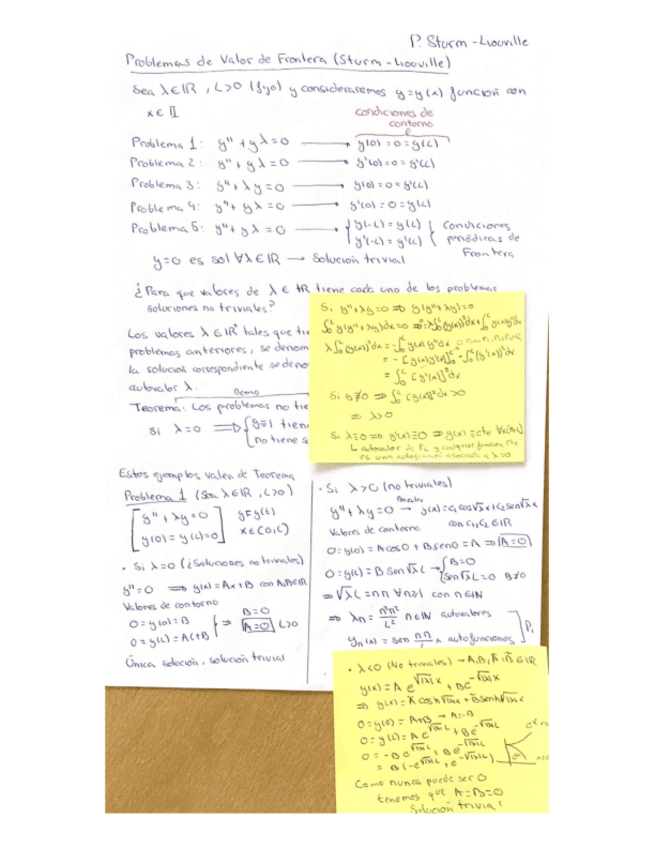 P. Sturm-Liouville
Problemas de Valor de Frontera (Sturm-Liouville)
Sea λ∈ℝ, L>0 (fijo) y consideraremos y=y(x) función con
x∈ II
condiciones de
contorno
Problema 1: y''+yλ=0 → y(0)=0=y(L)
Problema 2: y''+yλ=0 → y'(0)=0=y'(L)
Problema 3: y''+λy=0 → y(0)=0=y'(L)
Problema 4: y''+yλ=0 → y'(0)=0=y(L)
Problema 5: y''+yλ=0 → { y(-L)=y(L)
y'(-L)=y'(L) { Condiciones
periódicas de
Frontera
y=0 es sol ∀λ∈ℝ → Solución trivial
¿Para que valores de λ∈ℝ tiene cada uno de los problemas
soluciones no triviales?
Los valores λ∈ℝ tales que
problemas anteriores, se
la solución correspondiente se
autovalor λ.
Demo
Teorema: Los problemas no
Si λ=0 ⟹ { y≡1
no tiene
Si y''+λy=0 ⟹ y(y''+λy)=0
Si y≠0 ⟹ ∫₀ᴸ [y(x)]²dx>0
⟹ λ>0
Si λ=0 ⟹ y'(x)=0 ⟹ y(x)=cte
es una autofunción asociada a λ=0
Estos ejemplos valen de Teorema
Problema 1 (Sea λ∈ℝ, L>0)
[ y''+λy=0
y(0)=y(L)=0 ] y=y(t)
x∈(0,L)
· Si λ=0 (¿Soluciones no triviales)
y''=0 ⟹ y(x)=Ax+B con A,B∈ℝ
Valores de contorno
0=y(0)=B
0=y(L)=AL+B } ⟹ B=0
A=0 L>0
Única solución, solución trivial
· Si λ>0 (no triviales)
y''+λy=0 → y(x)=c₁cos√λx+c₂sen√λx
Valores de contorno con c₁,c₂∈ℝ
0=y(0)=Acos0+Bsen0=A ⟹ A=0
0=y(L)=Bsen√λL → { B=0
sen√λL=0 B≠0
⟹ √λL=nπ ∀n≥1 con n∈ℕ
⟹ λn=n²π²/L² n∈ℕ autovalores
yn(x)=sen nπ/L x autofunciones ] P₁
· λ<0 (No triviales) → A,B,Ã,B̃∈ℝ
y(x)=Ae^√|λ|x+Be^-√|λ|x
⟹ y(x)=Ãcosh√|λ|x+B̃senh√|λ|x
0=y(0)=A+B → A=-B
0=y(L)=Ae^√|λ|L+Be^-√|λ|L
0=-Be^√|λ|L+Be^-√|λ|L
=B(-e^√|λ|L+e^-√|λ|L)
Como nunca puede ser 0
tenemos que A=B=0
Solución trivial